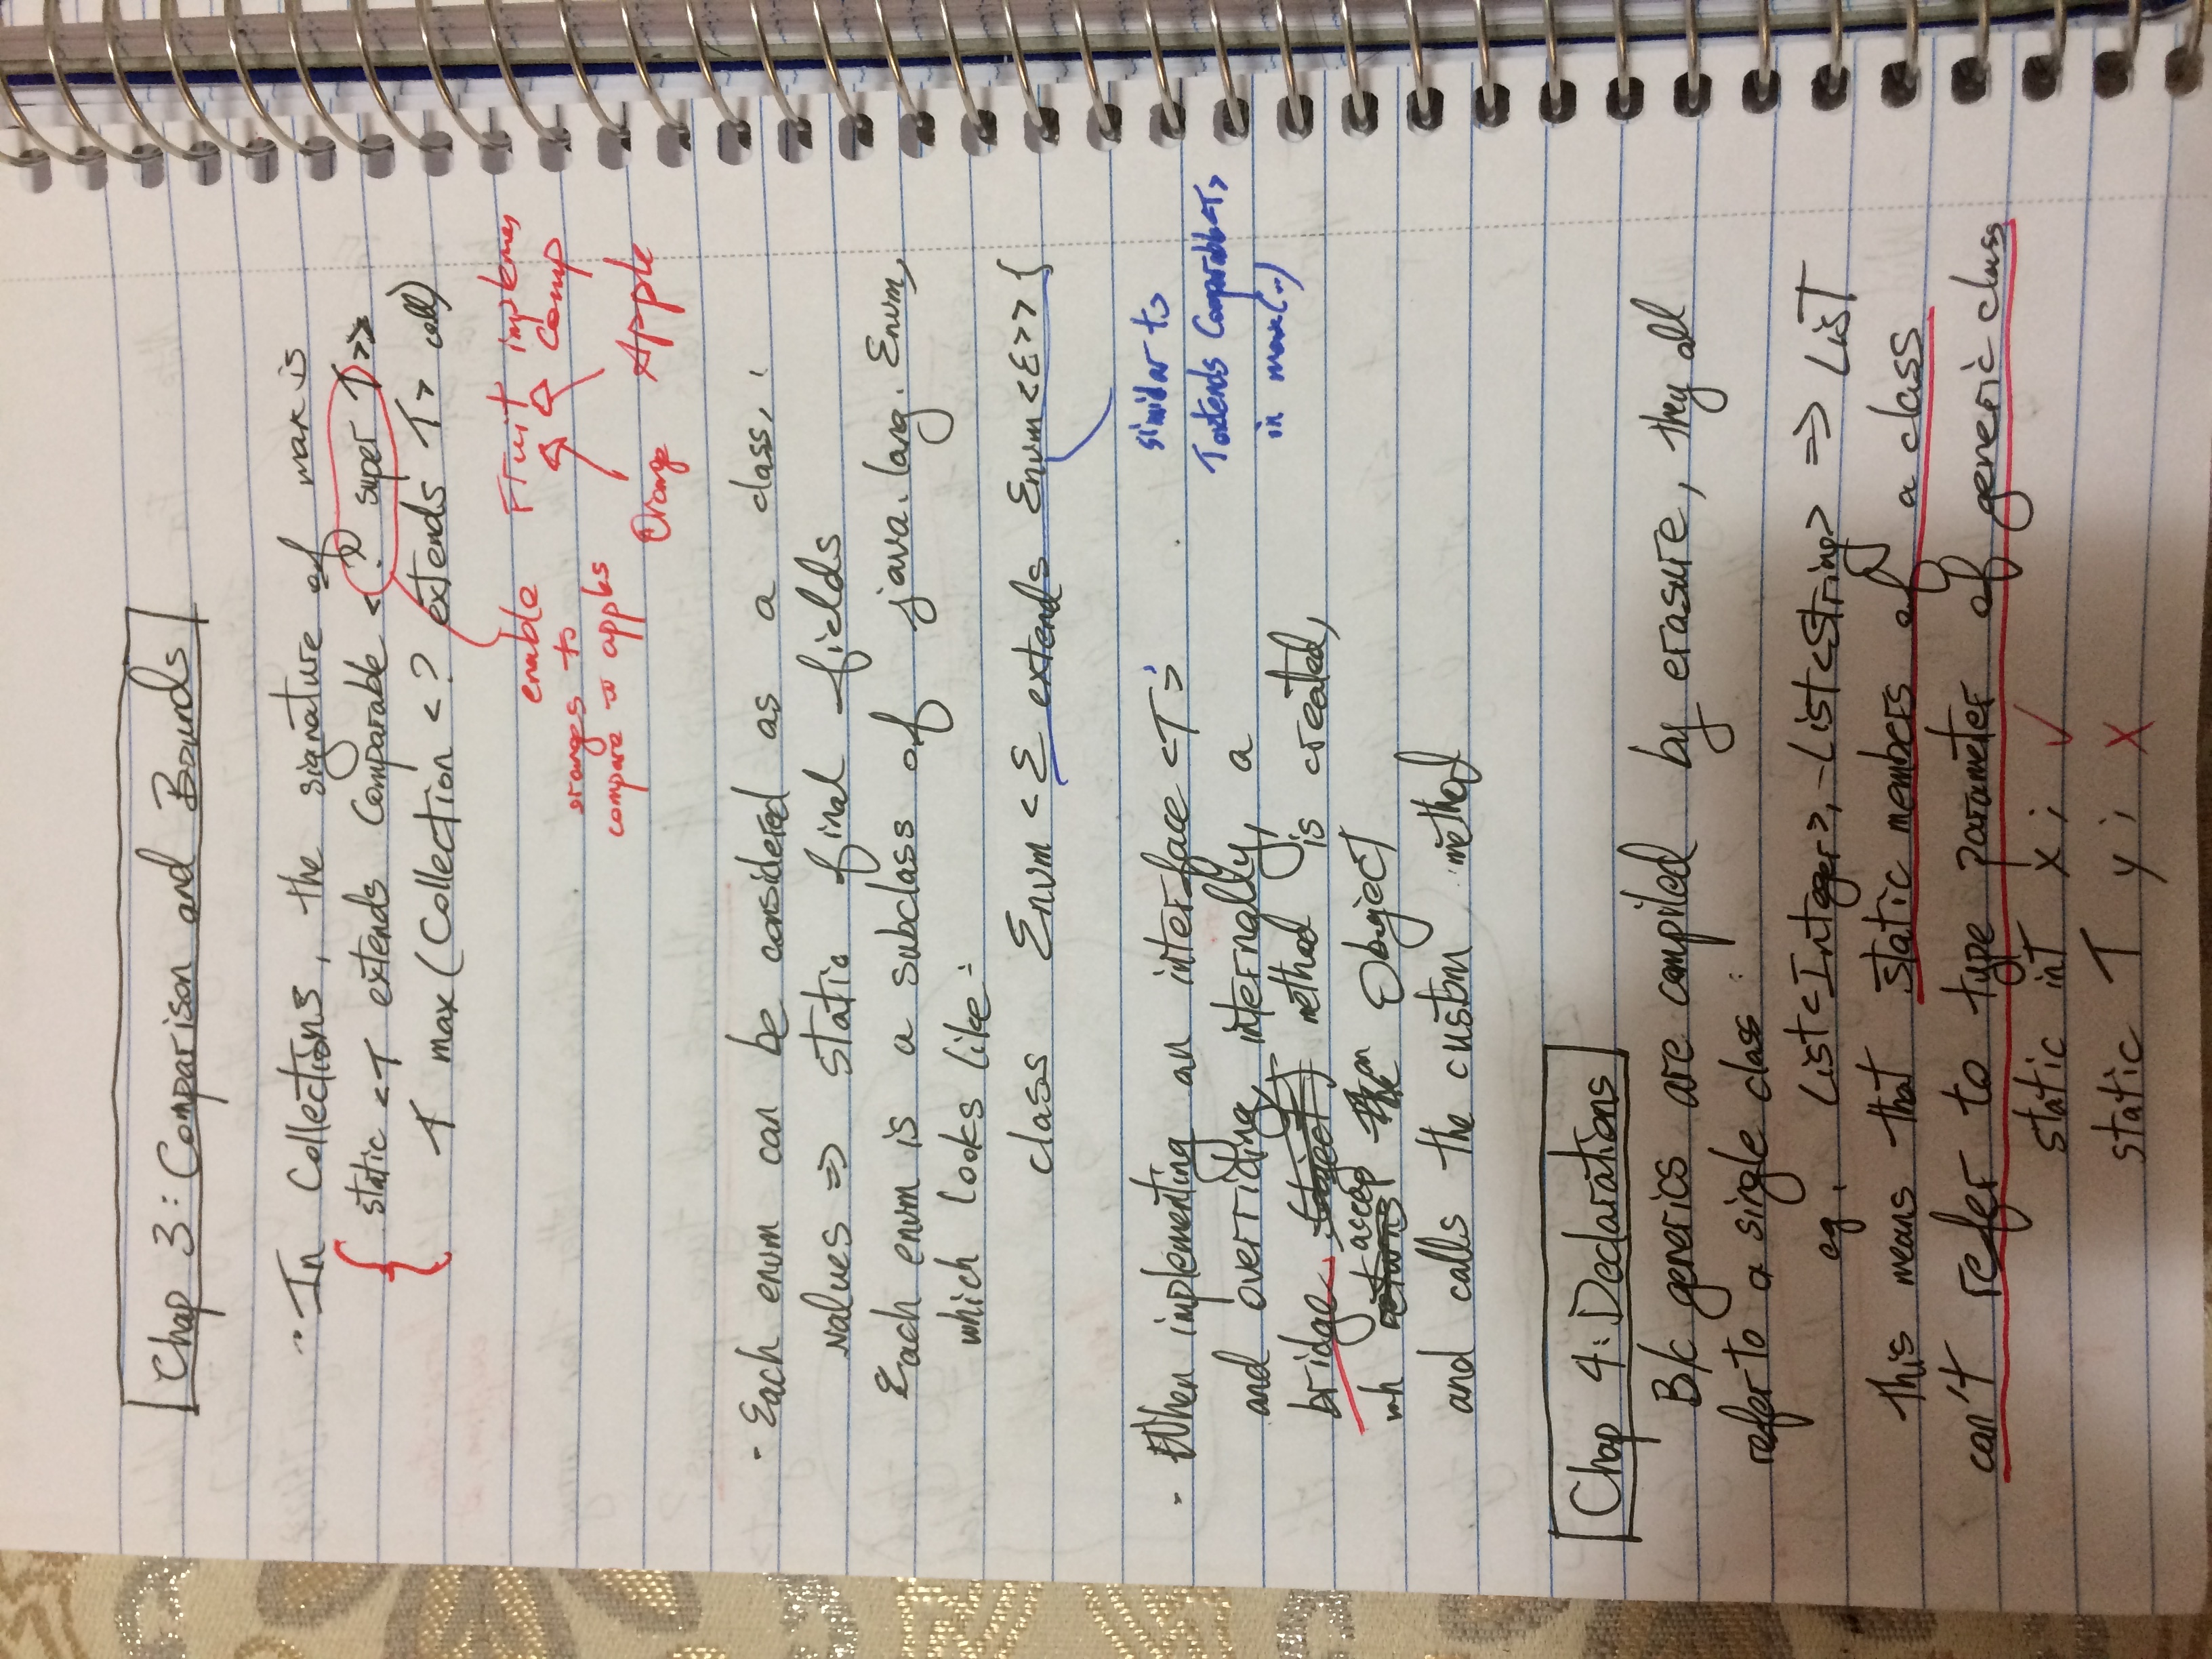 Chap 3: Comparison and Bounds
- In Collections, the signature of max is
{ static <T extends Comparable <? super T>>
T max (Collection <? extends T> coll)
enable
oranges to
compare to apples
Fruit implemen
Comp
Orange Apple
- Each enum can be considered as a class,
values => static final fields
Each enum is a subclass of java.lang.Enum,
which looks like:
class Enum <E extends Enum<E>> {
similar to
T extends Comparable<T>
in max(..)
- When implementing an interface <T>
and overriding, internally, a
bridge method is created,
wh accep an Object
and calls the custom method
Chap 4: Declarations
B/c generics are compiled by erasure, they all
refer to a single class:
eg. List<Integer>, List<String> => List
This means that static members of a class
can't refer to type parameter of generic class
static int x; ✓
static T y; ✗